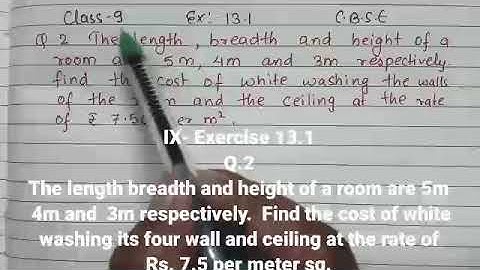 Class-9 Ex: 13.1 C.B.S.E
Q 2 The length, breadth and height of a
room 5m, 4m and 3m respectively
find the cost of white washing the walls
of the and the ceiling at the rate
of ₹ 7.50 er m².
IX- Exercise 13.1
Q.2
The length breadth and height of a room are 5m
4m and 3m respectively. Find the cost of white
washing its four wall and ceiling at the rate of
Rs. 7.5 per meter sq.